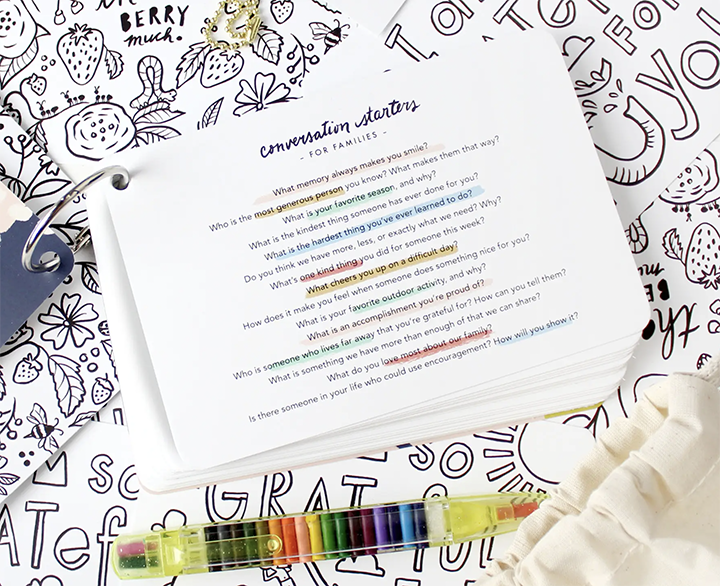 the
BERRY
much.
conversation starters
- FOR FAMILIES -
What memory always makes you smile?
Who is the most generous person you know? What makes them that way?
What is your favorite season, and why?
What is the kindest thing someone has ever done for you?
What is the hardest thing you've ever learned to do?
Do you think we have more, less, or exactly what we need? Why?
What's one kind thing you did for someone this week?
What cheers you up on a difficult day?
How does it make you feel when someone does something nice for you?
What is your favorite outdoor activity, and why?
What is an accomplishment you're proud of?
Who is someone who lives far away that you're grateful for? How can you tell them?
What is something we have more than enough of that we can share?
What do you love most about our family?
Is there someone in your life who could use encouragement? How will you show it?
FOR
you
BE
mu
so
so
GRAT